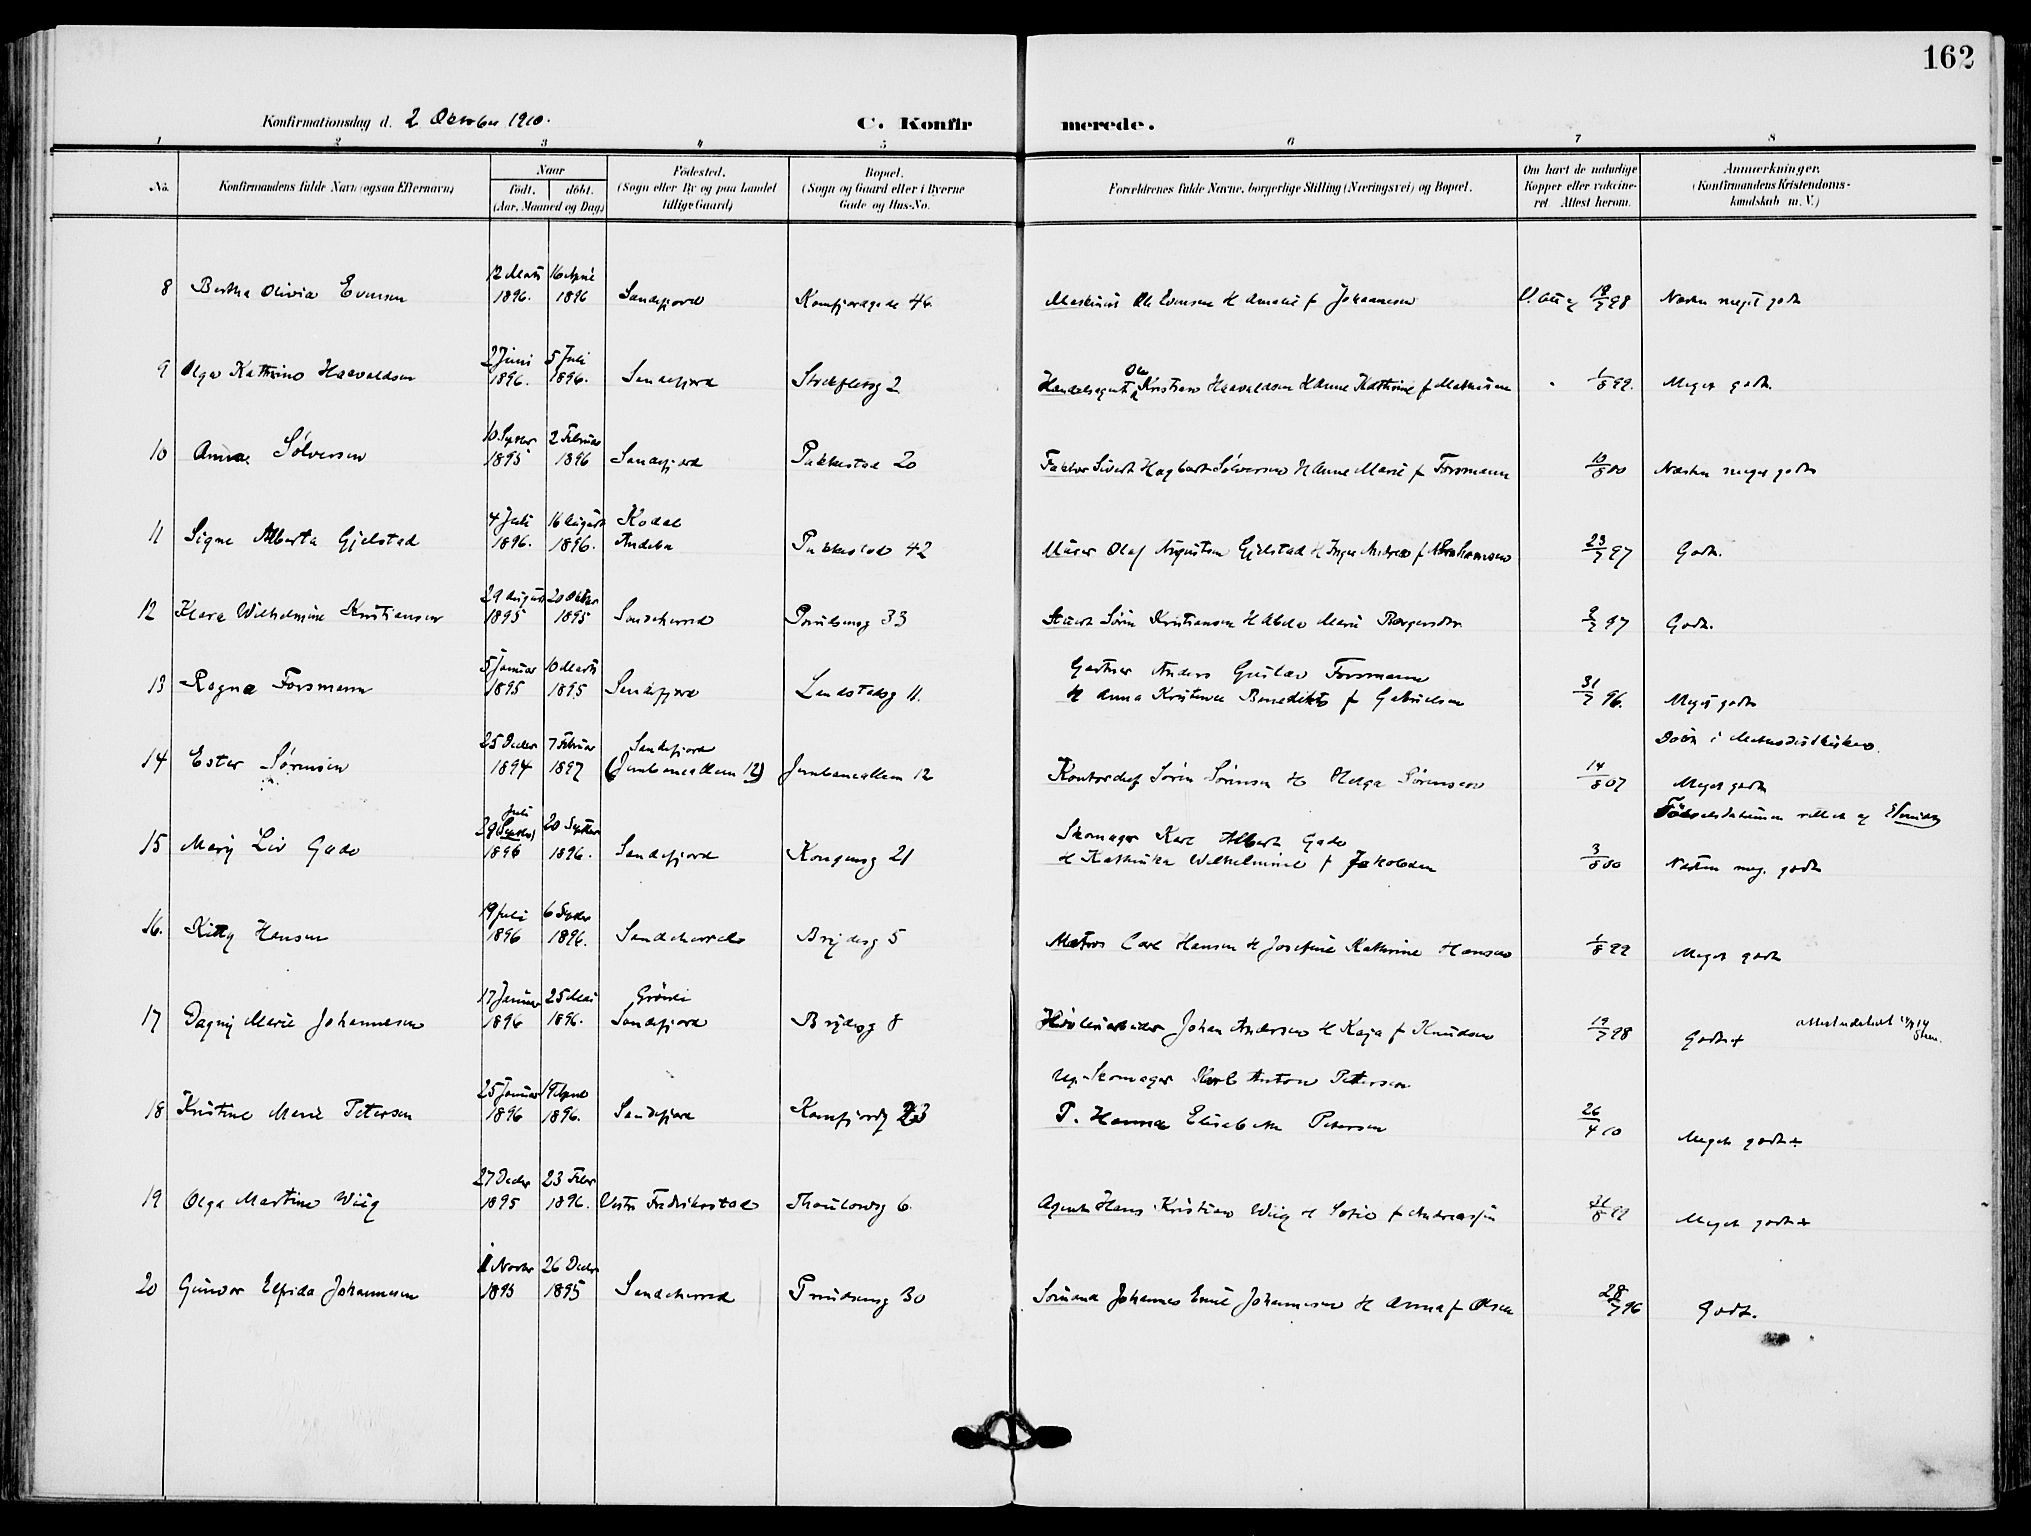 162
Konfirmationsdag d. 2 Oktober 1910.
C. Konfirmerede.
1 2 3 4 5 6 7 8
No. Konfirmandens fulde Navn (ogsaa Efternavn) Naar født. døbt. (Aar, Maaned og Dag) Fødested. (Sogn eller By og paa Landet tillige Gaard) Bopæl. (Sogn og Gaard eller i Byerne Gade og Hus-No. Forældrenes fulde Navne, borgerlige Stilling (Næringsvei) og Bopæl. Om havt de naturlige Kopper eller vaccineret Attest herom. Anmerkninger. (Konfirmandens Kristendomskundskab m. V.)
8 Bertha Olivia Evensen 12 Marts 1896. 16 April 1896 Sandefjord Kamfjordgade 46 Maskinist Ole Evensen H Amalie f Johannesen 19/7 98 Næsten meget godt
9 Olga Kathrine Haavaldsen 2 Juni 1896. 5 Juli 1896. Sandefjord 2 Handelsagent Ole Kristian Haavaldsen H Anne Kathrine f Mathisen 1/8 99. Meget godt.
10 Anna Sølversen 10 Septbr 1895 2 Februar 1896 Sandefjord Pukkestad 20 Faktor Sivert Hagbart Sølversen H Anne Marie f Forsmann 10/8 00 Næsten meget godt
11 Signe Alberta Gjelstad 4 Juli 1896. 16 August 1896. Kodal Andebu Pukkestad 42 Murer Olaf Augustsen Gjelstad H Inger Andrea f Abrahamsen 23/7 97 Godt.
12 Klara Wilhelmine Kristiansen 29 August 1895 20 Oktbr 1895 Sandeherred 33 Stuert Søren Kristiansen H Abele Marie Borgersdtr 2/7 97 Godt.
13 Ragna Forsmann 5 Januar 1895 10 Marts 1895 Sandefjord Landstadsg 11. Gartner Anders Gustav Forsmann
H Anna Kristence Benedikte f Gabrielsen 31/7 96. Meget godt
14 Ester Sørensen 25 Decbr 1894 7 Februar 1897 Sandefjord (Jernbanealleen 12) Jernbanealleen 12 Kontorchef Søren Sørensen H Helga Sørensen 14/8 07 Døbt i Methodistkirken.
Meget godt
15 Mary Liv Gade Juli 29 (Septbr) 1896 20 Septbr 1896. Sandefjord Kongensg 21 Skomager Karl Albert Gade
H Kathinka Wilhelmine f Jakobsen 3/8 00 Fødselsdatumen rettet af
Næsten meg. godt
16. Kitty Hansen 19 Juli 1896 6 Septbr 1896. Sandeherred Brydesg 5 Matros Carl Hansen H Josefine Kathrine Hansen 1/8 99 Meget godt
17 Dagny Marie Johannesen 17 Januar 1896 25 Mai 1896. Grønli Sandefjord Brydesg 8 Høvleriarbeider Johan Andersen H Kaja f Knudsen 19/7 98 Godt+ attest udstedt
18 Kristine Marie Petersen 25 Januar 1896 19 April 1896. Sandefjord Kamfjordg 23 Up. Skomager Karl Anton Pettersen
P. Hanna Elisabeth Petersen 26/4 10 Meget godt+
19 Olga Martine Wiig 27 Decbr 1895 23 Febr 1896. Vestre Fredrikstad Thaulowsg 6. Agent Hans Kristian Wiig H Sofie f Andreassen 31/8 99 Meget godt+
20 Gunvor Elfrida Johannesen 1 Novbr 1895 26 Decbr 1895 Sandeherred Prindsensg 30 Sømand Johannes Emil Johannesen H Anna f Olsen 28/7 96 Godt.